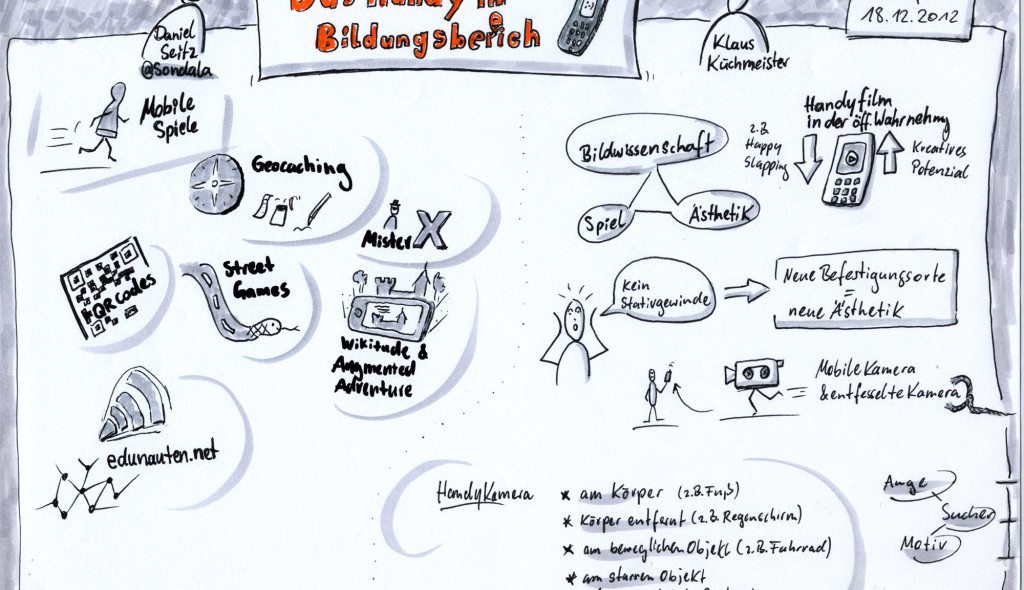 Das Handy im
Bildungsbereich
18.12.2012
Daniel
Seitz
@Sondala
Mobile
Spiele
Geocaching
Mister X
QR codes
Street
Games
Wikitude &
Augmented
Adventure
edunauten.net
Klaus
Küchmeister
Bildwissenschaft
Spiel
Ästhetik
Handyfilm
in der öff. Wahrnehmg
z.B.
Happy
Slapping
Kreatives
Potenzial
Kein
Stativgewinde
Neue Befestigungsorte
=
neue Ästhetik
Mobile Kamera
& entfesselte Kamera
Handykamera
x am Körper (z.B. Fuß)
x Körper entfernt (z.B. Regenschirm)
x am beweglichen Objekt (z.B. Fahrrad)
x am starren Objekt
Auge
Sucher
Motiv